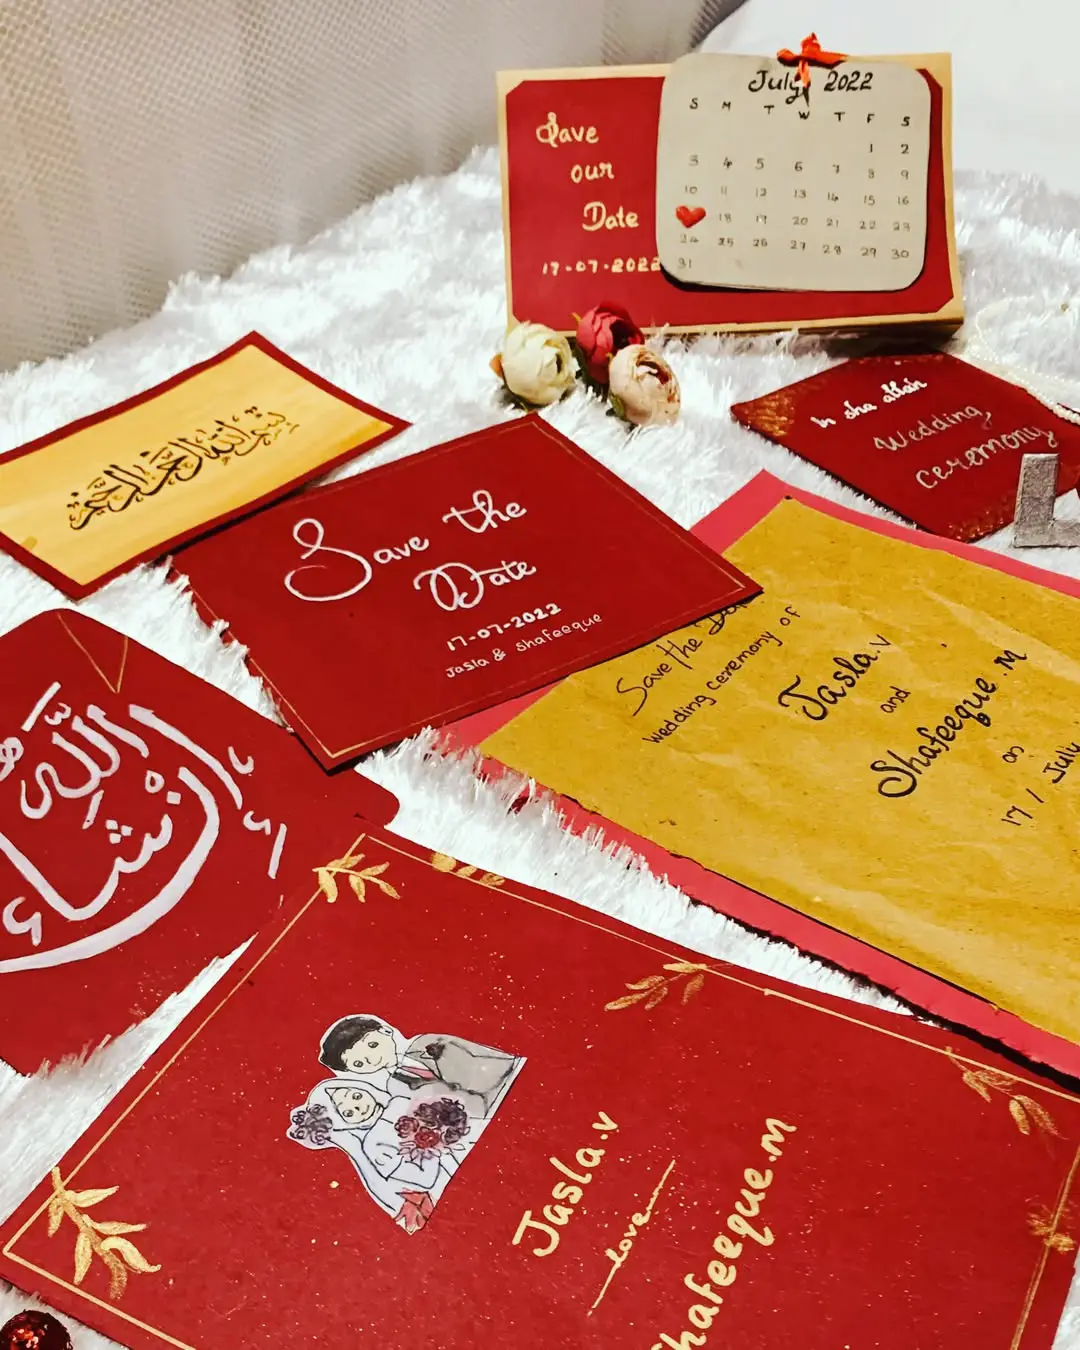 July 2022
S M T W T F S
1 2
3 4 5 6 7 8 9
10 11 12 13 14 15 16
18 19 20 21 22 23
24 25 26 27 28 29 30
31
Save
our
Date
17-07-2022
بسم الله الرحمن الرحيم
In sha allah
Wedding
Ceremony
Save the
Date
17-07-2022
Jasla & Shafeeque
Save the
Wedding Ceremony of
Jasla.V
and
Shafeeque.M
on
17 / July
إن شاء الله
Jasla.V
Love
Shafeeque.M